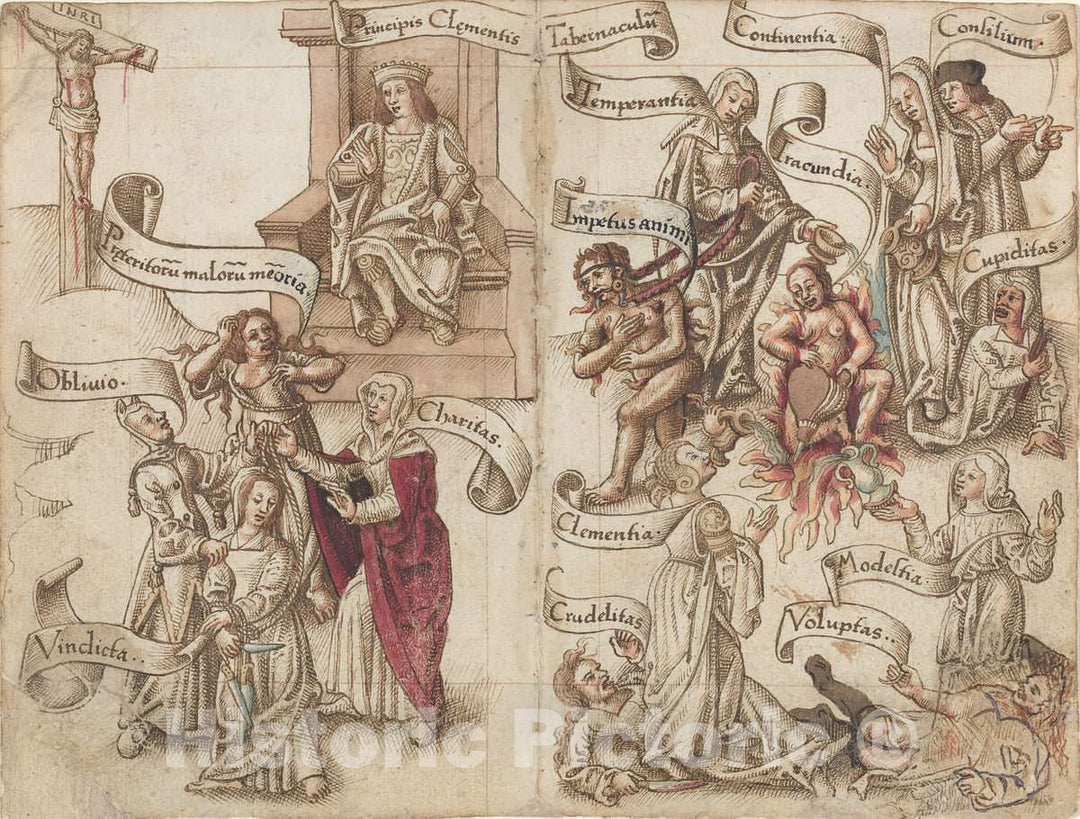 INRI
Principis Clementis Tabernaculũ
Continentia:
Consilium.
Temperantia
Iracundia:
Impetus animi
Cupiditas.
Preteritorũ malorũ meõria.
Obliuio.
Charitas.
Clementia:
Modestia:
Crudelitas
Voluptas..
Vindicta..
Historic Pictoric ©